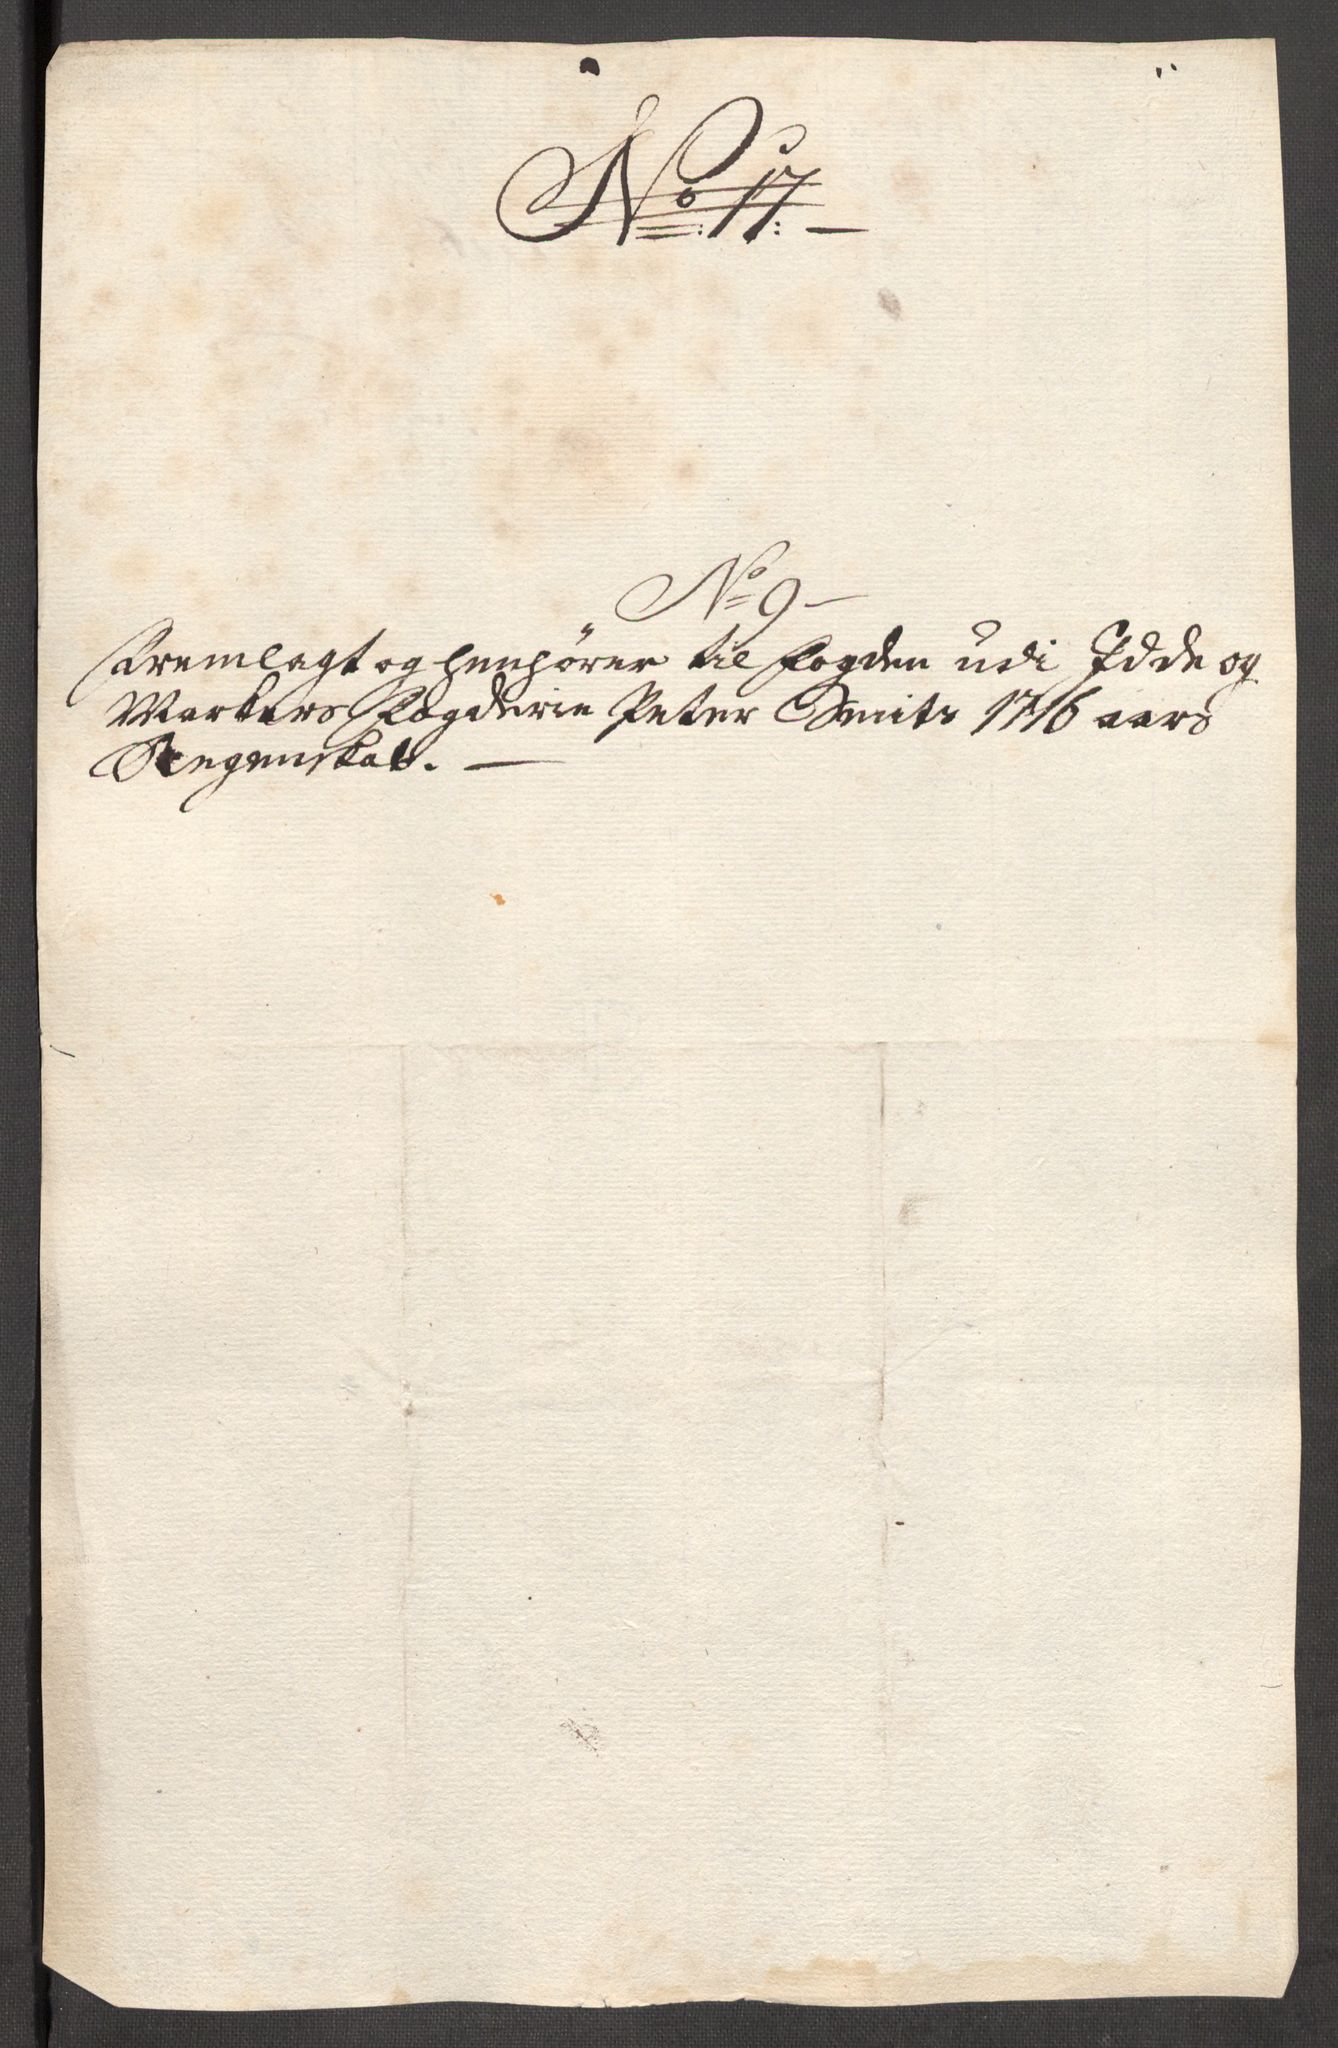 No 17.
No 9
Fremlagt og henhører til fogden udi Idde og
Markers fogderie Peter Smits 1716 aars
Regenskab.